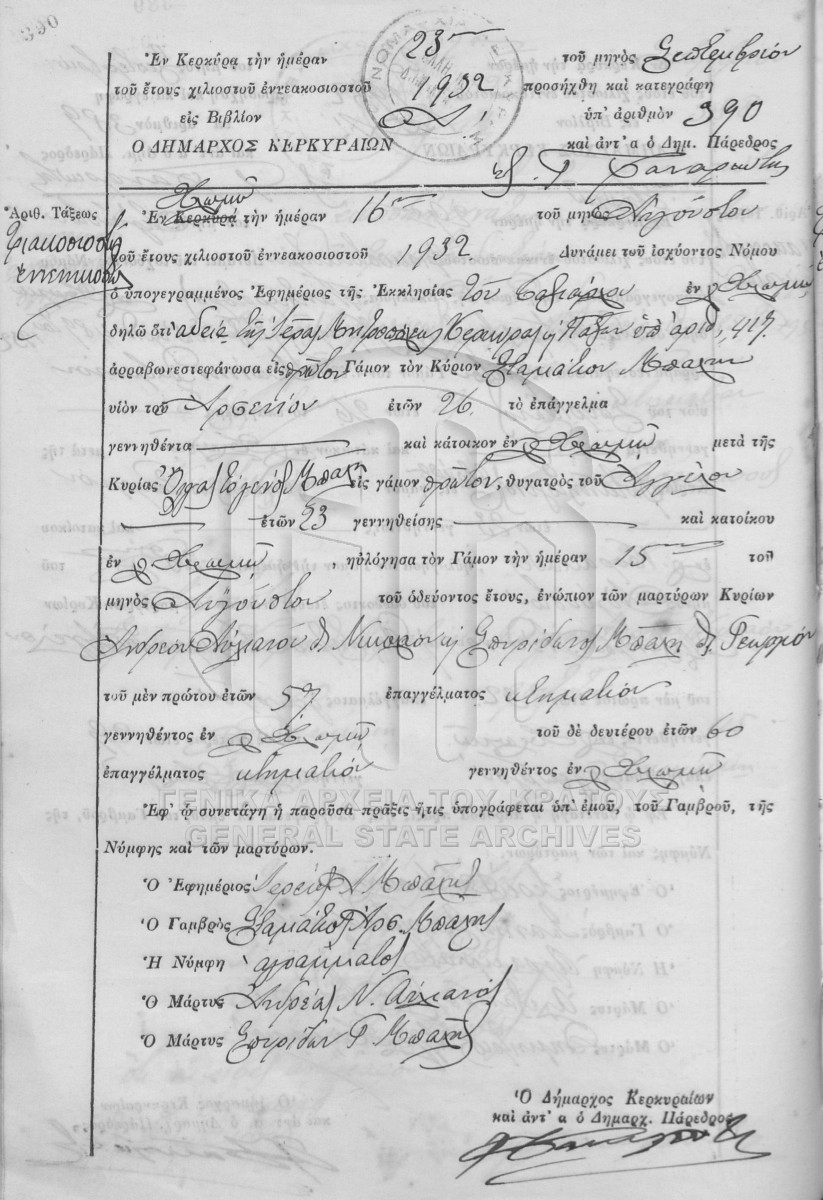 390
Ἐν Κερκύρᾳ τὴν ἡμέραν 23ην τοῦ μηνὸς Σεπτεμβρίου
τοῦ ἔτους χιλιοστοῦ ἐννεακοσιοστοῦ 1932 προσήχθη καὶ κατεγράφη
εἰς Βιβλίον Α' ὑπ' ἀριθμὸν 390
Ὁ ΔΗΜΑΡΧΟΣ ΚΕΡΚΥΡΑΙΩΝ καὶ ἀντ' α ὁ Δημ. Πάρεδρος
Ἀριθ. Τάξεως
Τριακοσιοστὸς
ἐννενηκοστὸς
Χλωμῷ
Ἐν Κερκύρᾳ τὴν ἡμέραν 16ην τοῦ μηνὸς Αὐγούστου
τοῦ ἔτους χιλιοστοῦ ἐννεακοσιοστοῦ 1932. Δυνάμει τοῦ ἰσχύοντος Νόμου
ὁ ὑπογεγραμμένος Ἐφημέριος τῆς Ἐκκλησίας τῶν Ταξιαρχῶν ἐν Χλωμῷ
δηλῶ ὅτι ἀδείᾳ τῆς Ἱερᾶς Μητροπόλεως Κερκύρας κ Παξῶν ὑπ' ἀριθ. 417.
ἀρραβωνεστεφάνωσα εἰς πρῶτον Γάμον τὸν Κύριον Σταμάτιον Μπάκην
υἱὸν τοῦ Ἀρσενίου ἐτῶν 26 τὸ ἐπάγγελμα
γεννηθέντα καὶ κάτοικον ἐν Χλωμῷ μετὰ τῆς
Κυρίας Ὄλγας Εὐγενίας Μπάκη εἰς γάμον πρῶτον, θυγατρὸς τοῦ Ἀγγέλου
ἐτῶν 23 γεννηθείσης καὶ κατοίκου
ἐν Χλωμῷ, ηὐλόγησα τὸν Γάμον τὴν ἡμέραν 15 τοῦ
μηνὸς Αὐγούστου τοῦ ὁδεύοντος ἔτους, ἐνώπιον τῶν μαρτύρων Κυρίων
Ἀνδρέου Νικολάου κ Σπυρίδωνος Μπάκη Γεωργίου
τοῦ μὲν πρώτου ἐτῶν 57 ἐπαγγέλματος κτηματίου
γεννηθέντος ἐν Χλωμῷ τοῦ δὲ δευτέρου ἐτῶν 60
ἐπαγγέλματος κτηματίου γεννηθέντος ἐν Χλωμῷ
Ἐφ' ᾧ συνετάγη ἡ παροῦσα πρᾶξις ἥτις ὑπογράφεται ὑπ' ἐμοῦ, τοῦ Γαμβροῦ, τῆς
Νύμφης καὶ τῶν μαρτύρων.
ΓΕΝΙΚΑ ΑΡΧΕΙΑ ΤΟΥ ΚΡΑΤΟΥΣ
GENERAL STATE ARCHIVES
Ὁ Ἐφημέριος Ἱερεὺς Α Μπάκης
Ὁ Γαμβρὸς Σταμάτιος Ἀρσ. Μπάκης
Ἡ Νύμφη ἀγράμματος
Ὁ Μάρτυς Ἀνδρέας Ν.
Ὁ Μάρτυς Σπυρίδων Γ Μπάκης
Ὁ Δήμαρχος Κερκυραίων
καὶ ἀντ' α ὁ Δημαρχ. Πάρεδρος